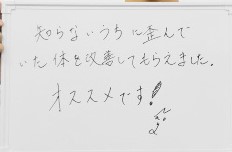 知らないうちに歪んで
いた体を改善してもらえました。
オススメです!